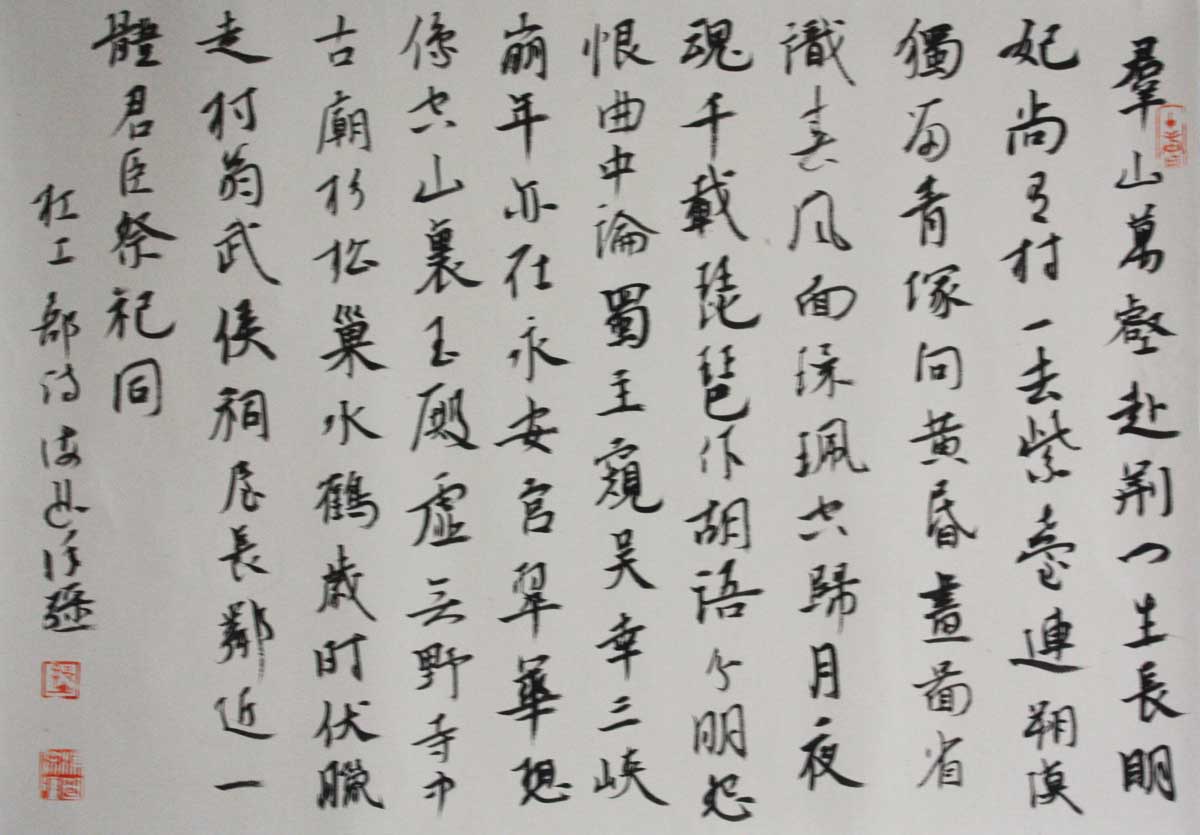 羣山萬壑赴荊門生長明
妃尚有村一去紫臺連朔漠
獨留青塚向黃昏畫圖省
識春風面環珮空歸月夜
魂千載琵琶作胡語分明怨
恨曲中論蜀主窺吳幸三峽
崩年亦在永安宮翠華想
像空山裏玉殿虛無野寺中
古廟杉松巢水鶴歲時伏臘
走村翁武侯祠屋長鄰近一
體君臣祭祀同
杜工部詩